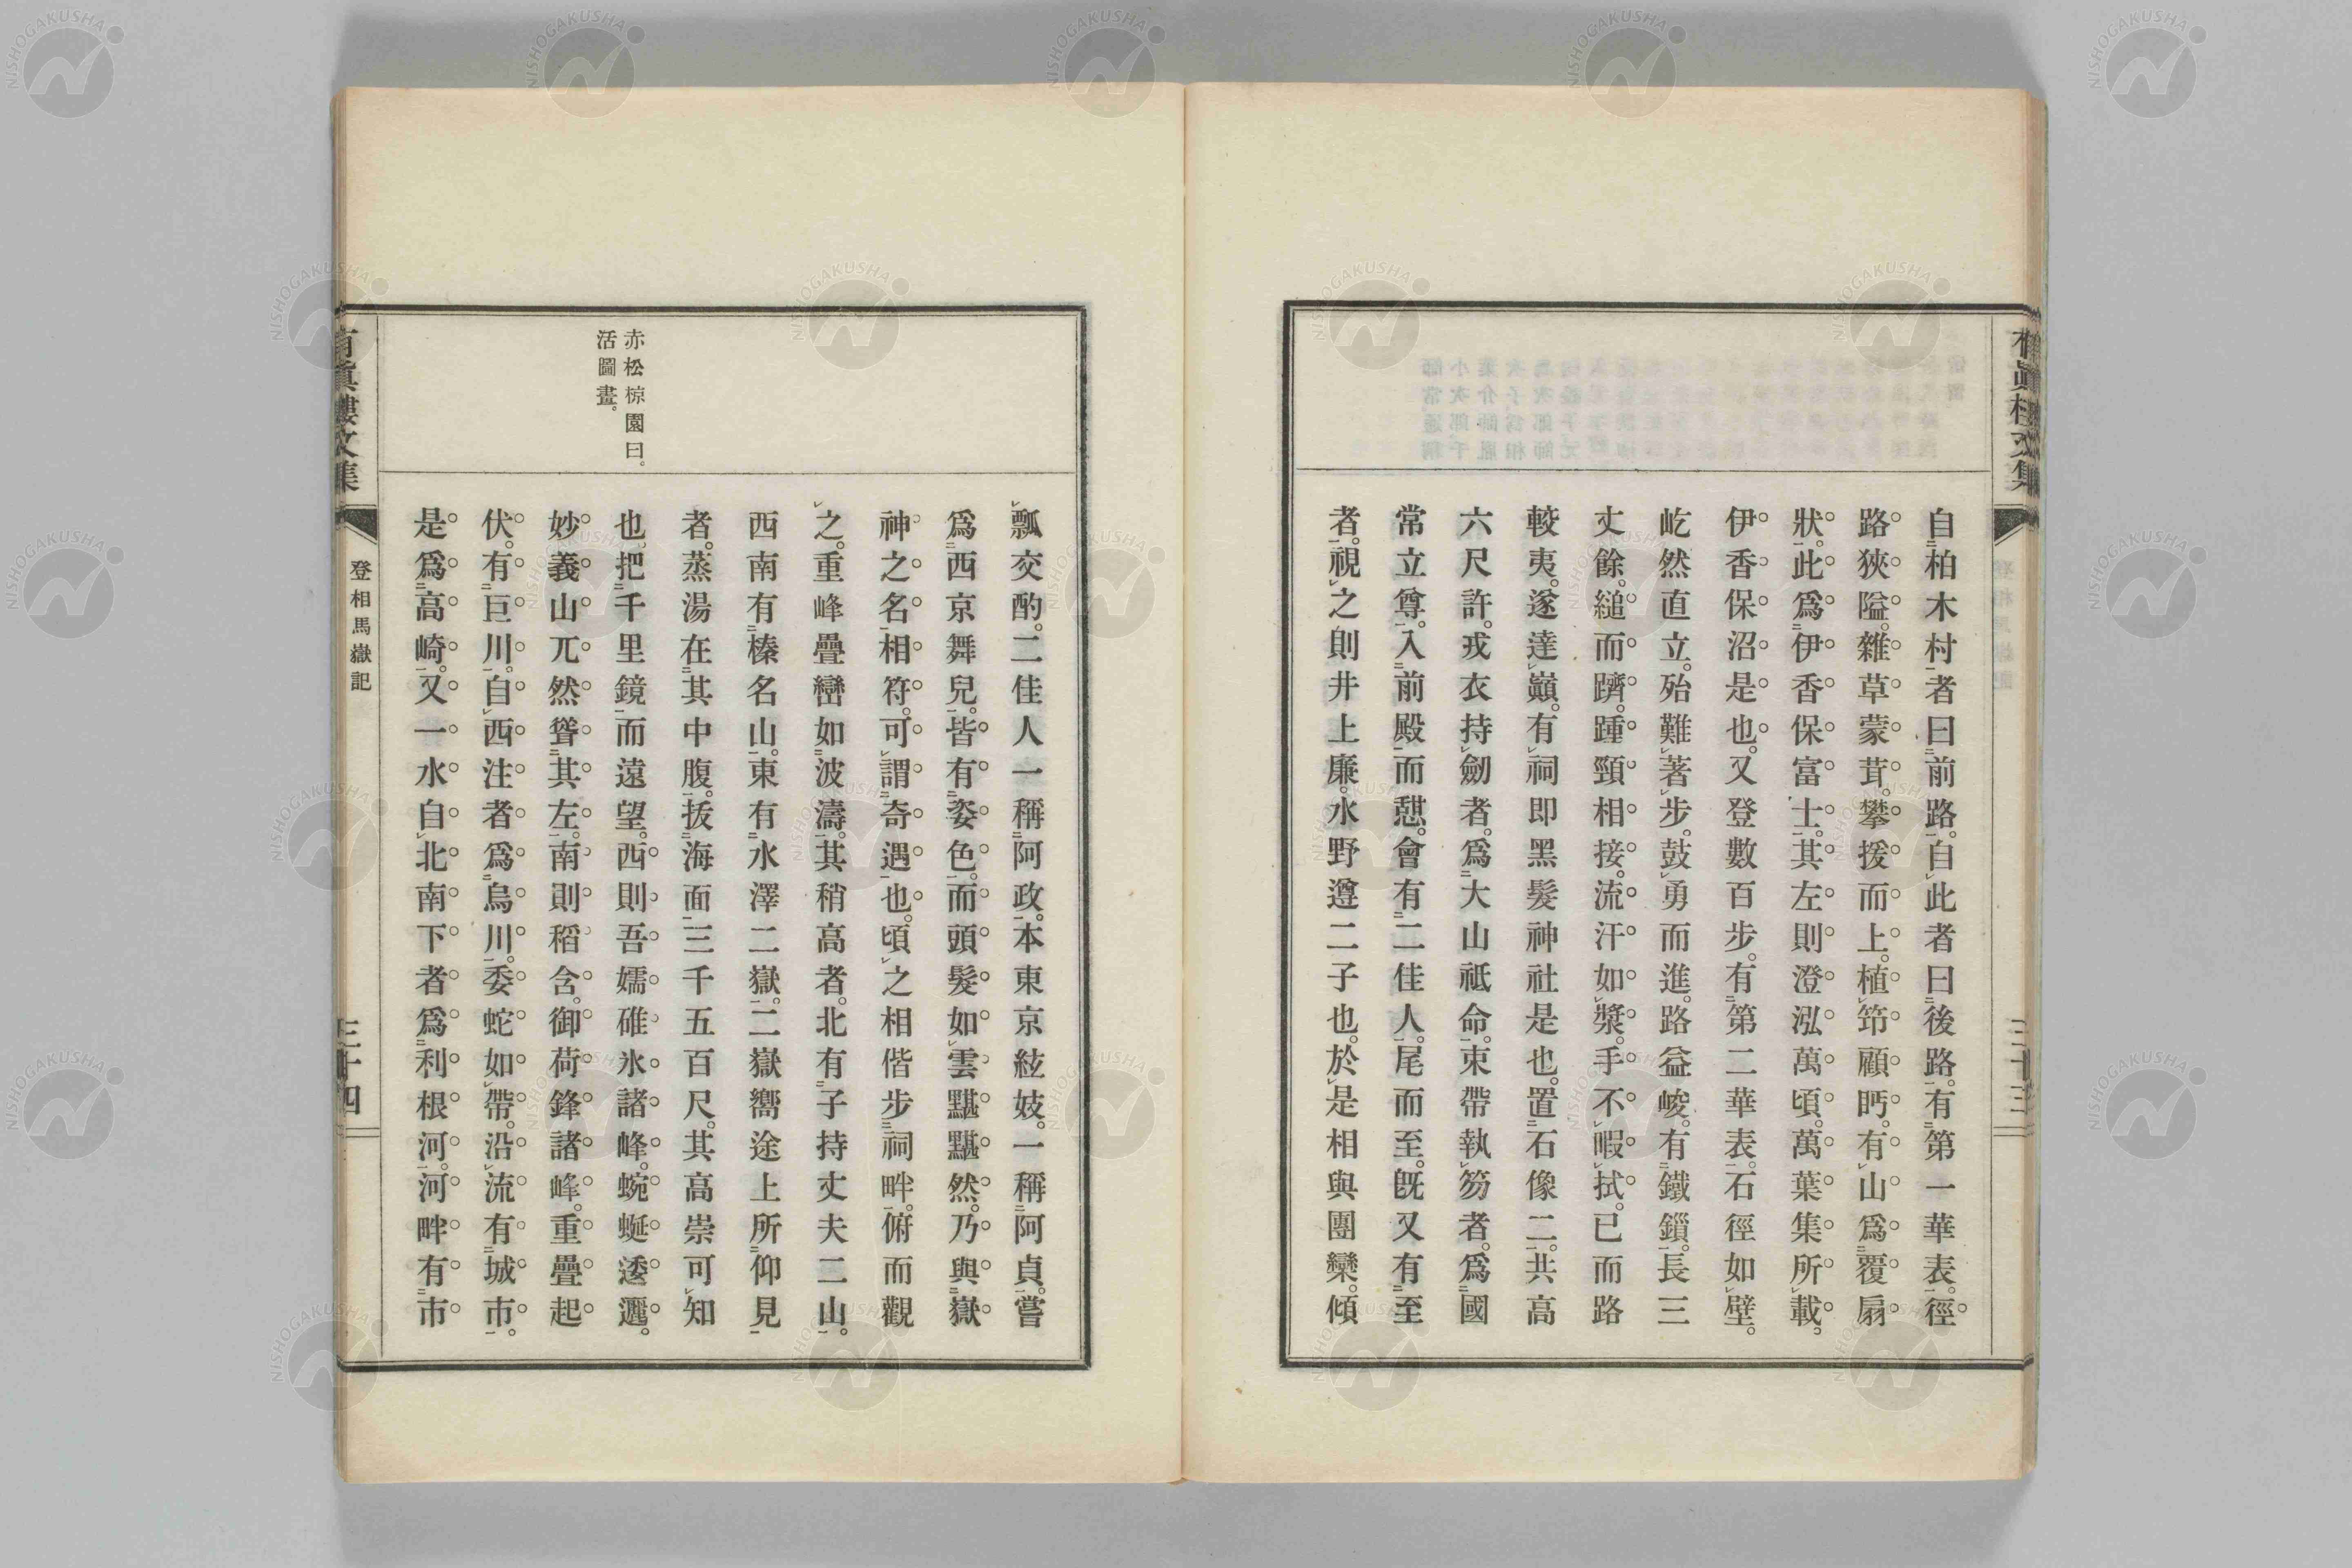 自柏木村者曰前路。自此者曰後路。有第一華表。徑
路狹隘。雜草蒙茸。攀援而上。植筇顧眄。有山爲覆扇
狀。此爲伊香保富士。其左則澄泓萬頃。萬葉集所載。
伊香保沼是也。又登數百步。有第二華表。石徑如壁。
屹然直立。殆難著步。鼓勇而進。路益峻。有鐵鎖。長三
丈餘。縋而躋。踵頸相接。流汗如漿。手不暇拭。已而路
較夷。遂達巔。有祠即黑髮神社是也。置石像二。共高
六尺許。戎衣持劒者。爲大山祗命。束帶執笏者。爲國
常立尊。入前殿而憩。會有二佳人。尾而至。既又有至
者。視之則井上廉。水野遵二子也。於是相與團欒。傾
三十三
赤松椋園曰。
活圖畫。
瓢交酌。二佳人一稱阿政。本東京絃妓。一稱阿貞。嘗
爲西京舞兒。皆有姿色。而頭髮如雲黮黮然。乃與嶽
神之名相符。可謂奇遇也。頃之相偕步祠畔。俯而觀
之。重峰疊巒如波濤。其稍高者。北有子持丈夫二山。
西南有榛名山。東有水澤二嶽。二嶽嚮途上所仰見
者。蒸湯在其中腹。拔海面三千五百尺。其高崇可知
也。把千里鏡而遠望。西則吾嬬碓氷諸峰。蜿蜒逶邐。
妙義山兀然聳其左。南則稻含。御荷鋒諸峰。重疊起
伏。有巨川。自西注者爲烏川。委蛇如帶。沿流有城市。
是爲高崎。又一水自北南下者爲利根河。河畔有市
有眞樓文集
登相馬嶽記
三十四